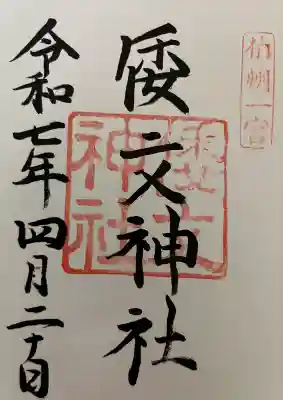 伯州一宮
倭文神社
令和七年四月二十日